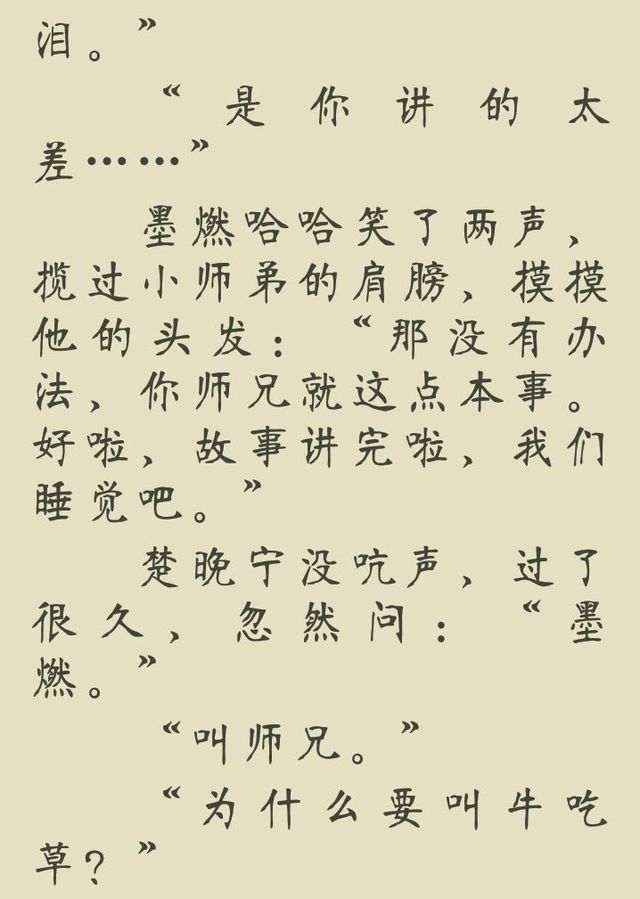 泪。”
“是你讲的太
差……”
墨燃哈哈笑了两声，
揽过小师弟的肩膀，摸摸
他的头发：“那没有办
法，你师兄就这点本事。
好啦，故事讲完啦，我们
睡觉吧。”
楚晚宁没吭声，过了
很久，忽然问：“墨
燃。”
“叫师兄。”
“为什么要叫牛吃
草？”